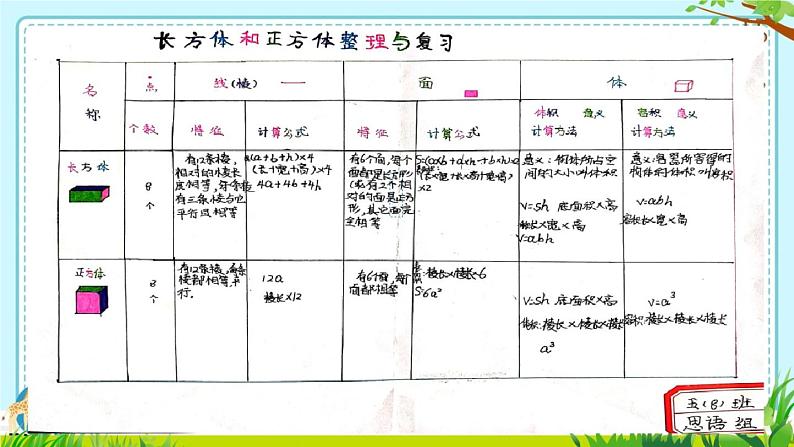 长方体和正方体整理与复习
名称
点
线(棱)
面
体
个数
特征
计算公式
特征
计算公式
体积 意义
计算方法
容积 意义
计算方法
长方体
8
个
有12条棱,
相对的棱长
度相等,
有三条棱
平行且相等
(a+b+h)×4
(长+宽+高)×4
4a+4b+4h
有6个面,每个
面都是长方形
(或有2个相
对的面是正方
形,其它面完
全相等
×2
意义:物体所占空
间的大小叫体积
V=sh 底面积×高
长×宽×高
V=abh
意义:容器所容得的
物体的体积叫容积
V=abh
长×宽×高
正方体
8
个
有12条棱,
棱都相等,平
行。
12a
棱长×12
有6个面,
面都相等
棱长×棱长×6
S=6a²
V=sh 底面积×高
体积:棱长×棱长×棱长
a³
V=a³
容积:棱长×棱长×棱长
五(8)班
思语组